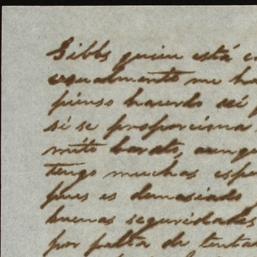 Gibbs quien está e
igualmente me ha
pienso haciendo así f
si se proporciona
mũto barato, aunque
tengo muchas espe
pues es demasiado
buenas seguridades
por falta de tenta